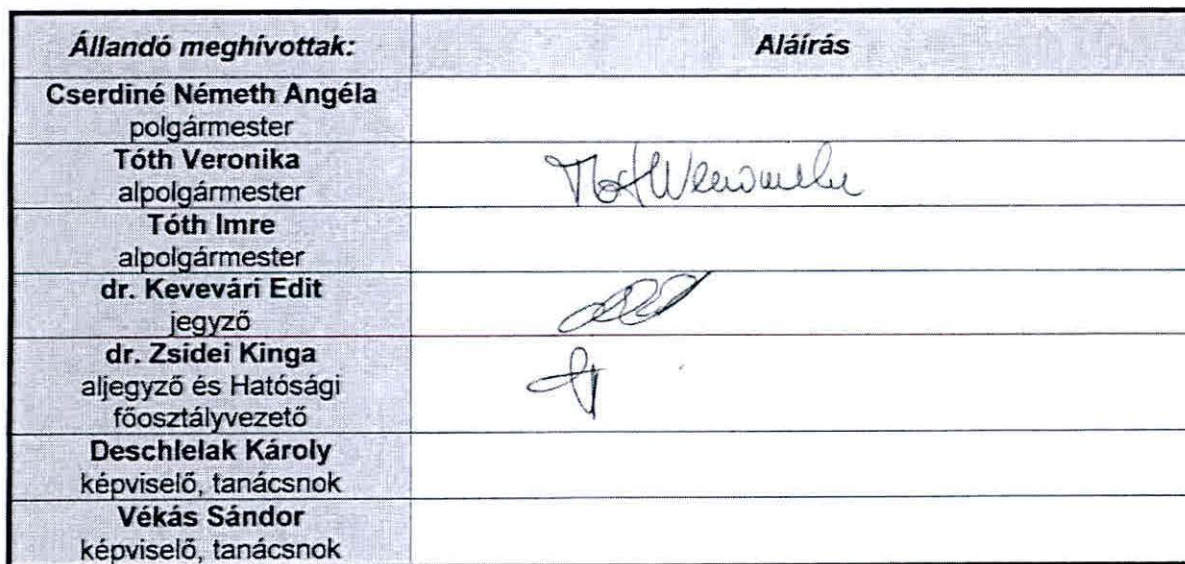 Állandó meghívottak: Aláírás
Cserdiné Németh Angéla
polgármester
Tóth Veronika
alpolgármester
Tóth Imre
alpolgármester
dr. Kevevári Edit
jegyző
dr. Zsidei Kinga
aljegyző és Hatósági
főosztályvezető
Deschlelak Károly
képviselő, tanácsnok
Vékás Sándor
képviselő, tanácsnok